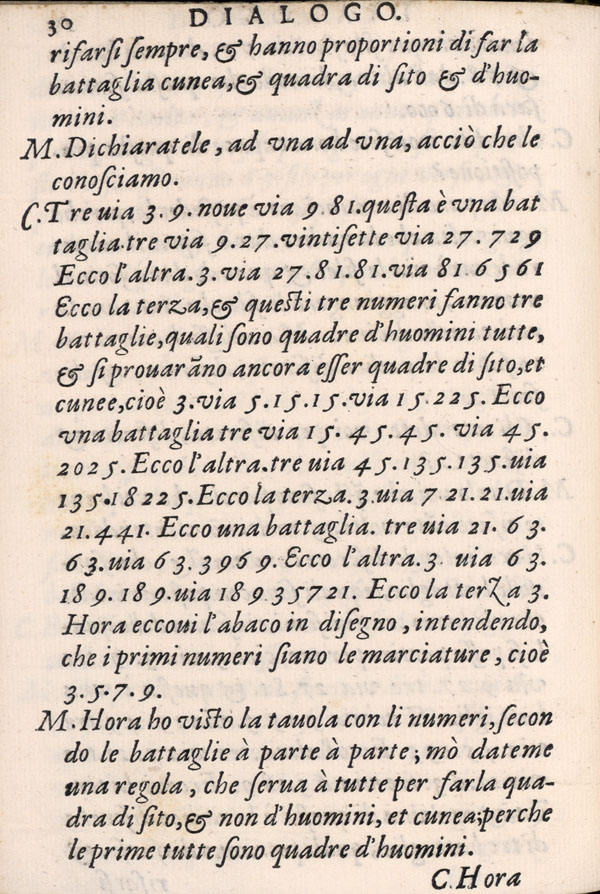 30 DIALOGO.
rifarsi sempre, & hanno proportioni di far la
battaglia cunea, & quadra di sito & d'huo-
mini.
M. Dichiaratele, ad vna ad vna, acciò che le
conosciamo.
C. Tre uia 3. 9. noue via 9 81. questa è vna bat
taglia. tre via 9. 27. vintisette via 27. 729
Ecco l'altra. 3. via 27. 81. 81. via 81. 6561
Ecco la terza, & questi tre numeri fanno tre
battaglie, quali sono quadre d'huomini tutte,
& si prouarãno ancora esser quadre di sito, et
cunee, cioè 3. via 5. 15. 15. via 15. 225. Ecco
vna battaglia tre via 15. 45. 45. via 45.
2025. Ecco l'altra. tre uia 45. 135. 135. uia
135. 18225. Ecco la terza. 3. uia 7 21. 21. uia
21. 441. Ecco una battaglia. tre uia 21. 63.
63. uia 63. 3969. Ecco l'altra. 3 uia 63.
189. 189. uia 189 35721. Ecco la terza 3.
Hora eccoui l'abaco in disegno, intendendo,
che i primi numeri siano le marciature, cioè
3. 5. 7. 9.
M. Hora ho visto la tauola con li numeri, secon
do le battaglie à parte à parte; mò dateme
una regola, che serua à tutte per farla qua-
dra di sito, & non d'huomini, et cunea; perche
le prime tutte sono quadre d'huomini.
C. Hora